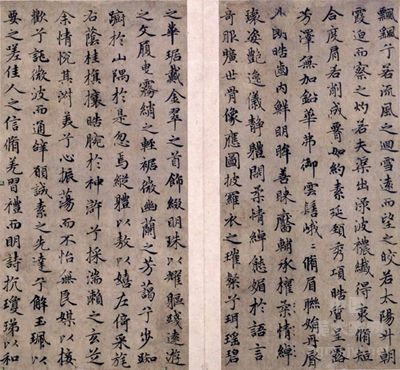 飄颻兮若流風之迴雪遠而望之皎若太陽升朝
霞迫而察之灼若夫渠出淥波穠纖得衷脩短
合度肩若削成腰如約素延頸秀項皓質呈露
芳澤無加鉛華弗御雲髻峩峩脩眉聯娟丹脣
外朗皓齒內鮮明眸善睞靨輔承權柔情綽
姿艷逸儀靜體閑柔情綽態媚於語言
奇服曠世骨像應圖披羅衣之璀粲兮珥瑤碧
之華琚戴金翠之首飾綴明珠以耀軀踐遠遊
之文履曳霧綃之輕裾微幽蘭之芳藹兮步踟
躕於山隅於是忽焉縱體以遨以嬉左倚采旄
右蔭桂旗攘皓腕於神滸兮採湍瀨之玄芝
余情悅其淑美兮心振蕩而不怡無良媒以接
歡兮託微波而通辭願誠素之先達兮解玉珮以
要之嗟佳人之信脩羌習禮而明詩抗瓊珶以和